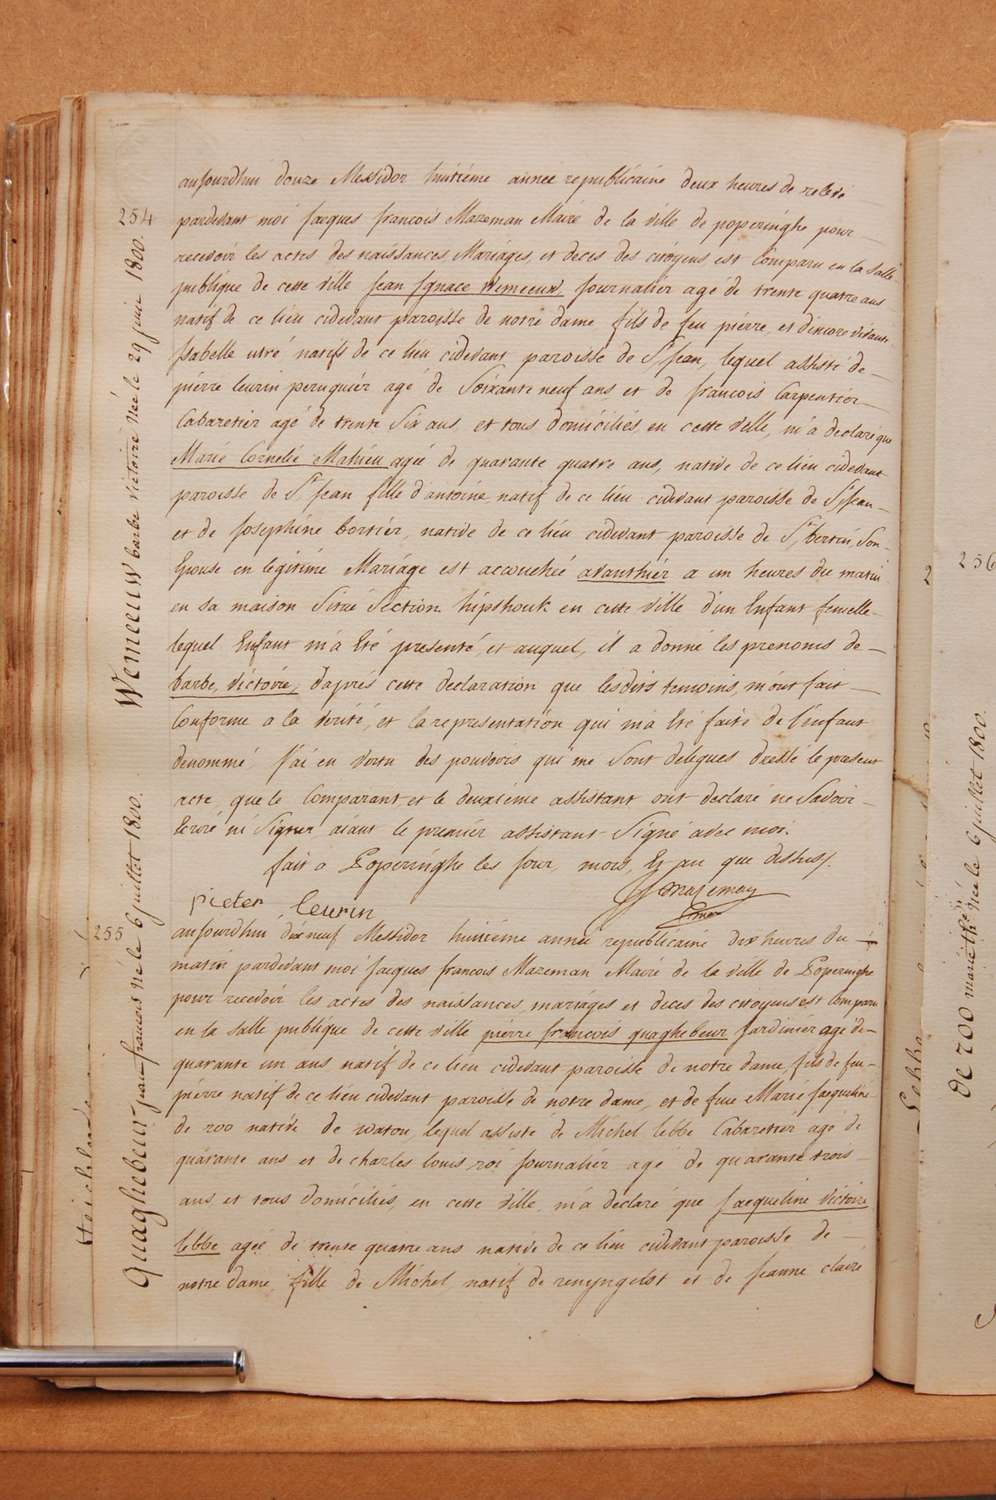 254
Wemeeuw barbe victoire née le 29 juin 1800.
aujourdhui douze Messidor huitiéme année republicaine deux heures de relevé
pardevant moi Jacques francois Mazeman Maire de la ville de poperinghe pour
recevoir les actes des naissances Mariáges, et deces des citoyens est Comparu en la Salle
publique de cette ville Jean Ignace Wemeeuw, Journalier agé de trente quatre ans
natif de ce lieu cidevant paroisse de notre dame, fils de feu pierre, et d'encore vivante
Isabelle utré natifs de ce lieu cidevant paroisse de St Jean, lequel assisté de
pierre leurin peruquiér agé de Soixante neuf ans et de francois Carpentier
Cabaretier agé de trente Six ans, et tous domiciliés, en cette ville, m'a declaré que
Marie Cornelie Mahieu ageé de quarante quatre ans, native de ce lieu cidevant
paroisse de St Jean fille d'antoine natif de ce lieu cidevant paroisse de St Jean
et de Josephine bortier, native de ce lieu cidevant paroisse de St bertin, Son
Epouse en legitime Mariáge est accouchée avanthier a un heures du matin
en sa maison Sitüé Section hipshouk en cette ville d'un Enfant femelle
lequel Enfant m'a Eté presenté, et auquel, il a donné les prenoms de
barbe, victoire, d'aprés cette declaration que lesdits temoins, m'ont fait
Conforme a la verité, et la representation qui m'a Eté faite de l'enfant
denommé, J'ai en vertu des pouvoirs qui me Sont delegues dressé le present
acte, que le Comparant et le deuxiéme assistant ont declaré ne Savoir
Ecriré ni Signer aiant le premier assistant Signé avec moi.
fait a Poperinghe les Jour, mois, Et an que dessus.
pieter leurin
255
Quaghebeur jean francois né le 6 juillet 1800.
aujourdhui dixneuf Messidor huitiéme année republicaine dix heures du
matin pardevant moi Jacques francois Mazeman Maire de la ville de Poperinghe
pour recevoir les actes des naissances, mariáges et deces des citoyens est Comparu
en la Salle publique de cette ville pierre francois quaghebeur Jardinier agé de
quarante un ans natif de ce lieu cidevant paroisse de notre dame, fils de feu
pierre natif de ce lieu cidevant paroisse de notre dame, et de feue Marie Jacqueline
de roo native de watou, lequel assisté de Michel lebbe Cabaretier agé de
quarante ans et de charles louis roi Journalier agé de quarante trois
ans, et tous domiciliés, en cette ville, m'a declaré que Jacqueline victoire
lebbe ageé de trente quatre ans native de ce lieu cidevant paroisse de
notre dame, fille de Michel natif de renyngelst et de Jeanne claire
256
de roo née le 6 juillet 1800.